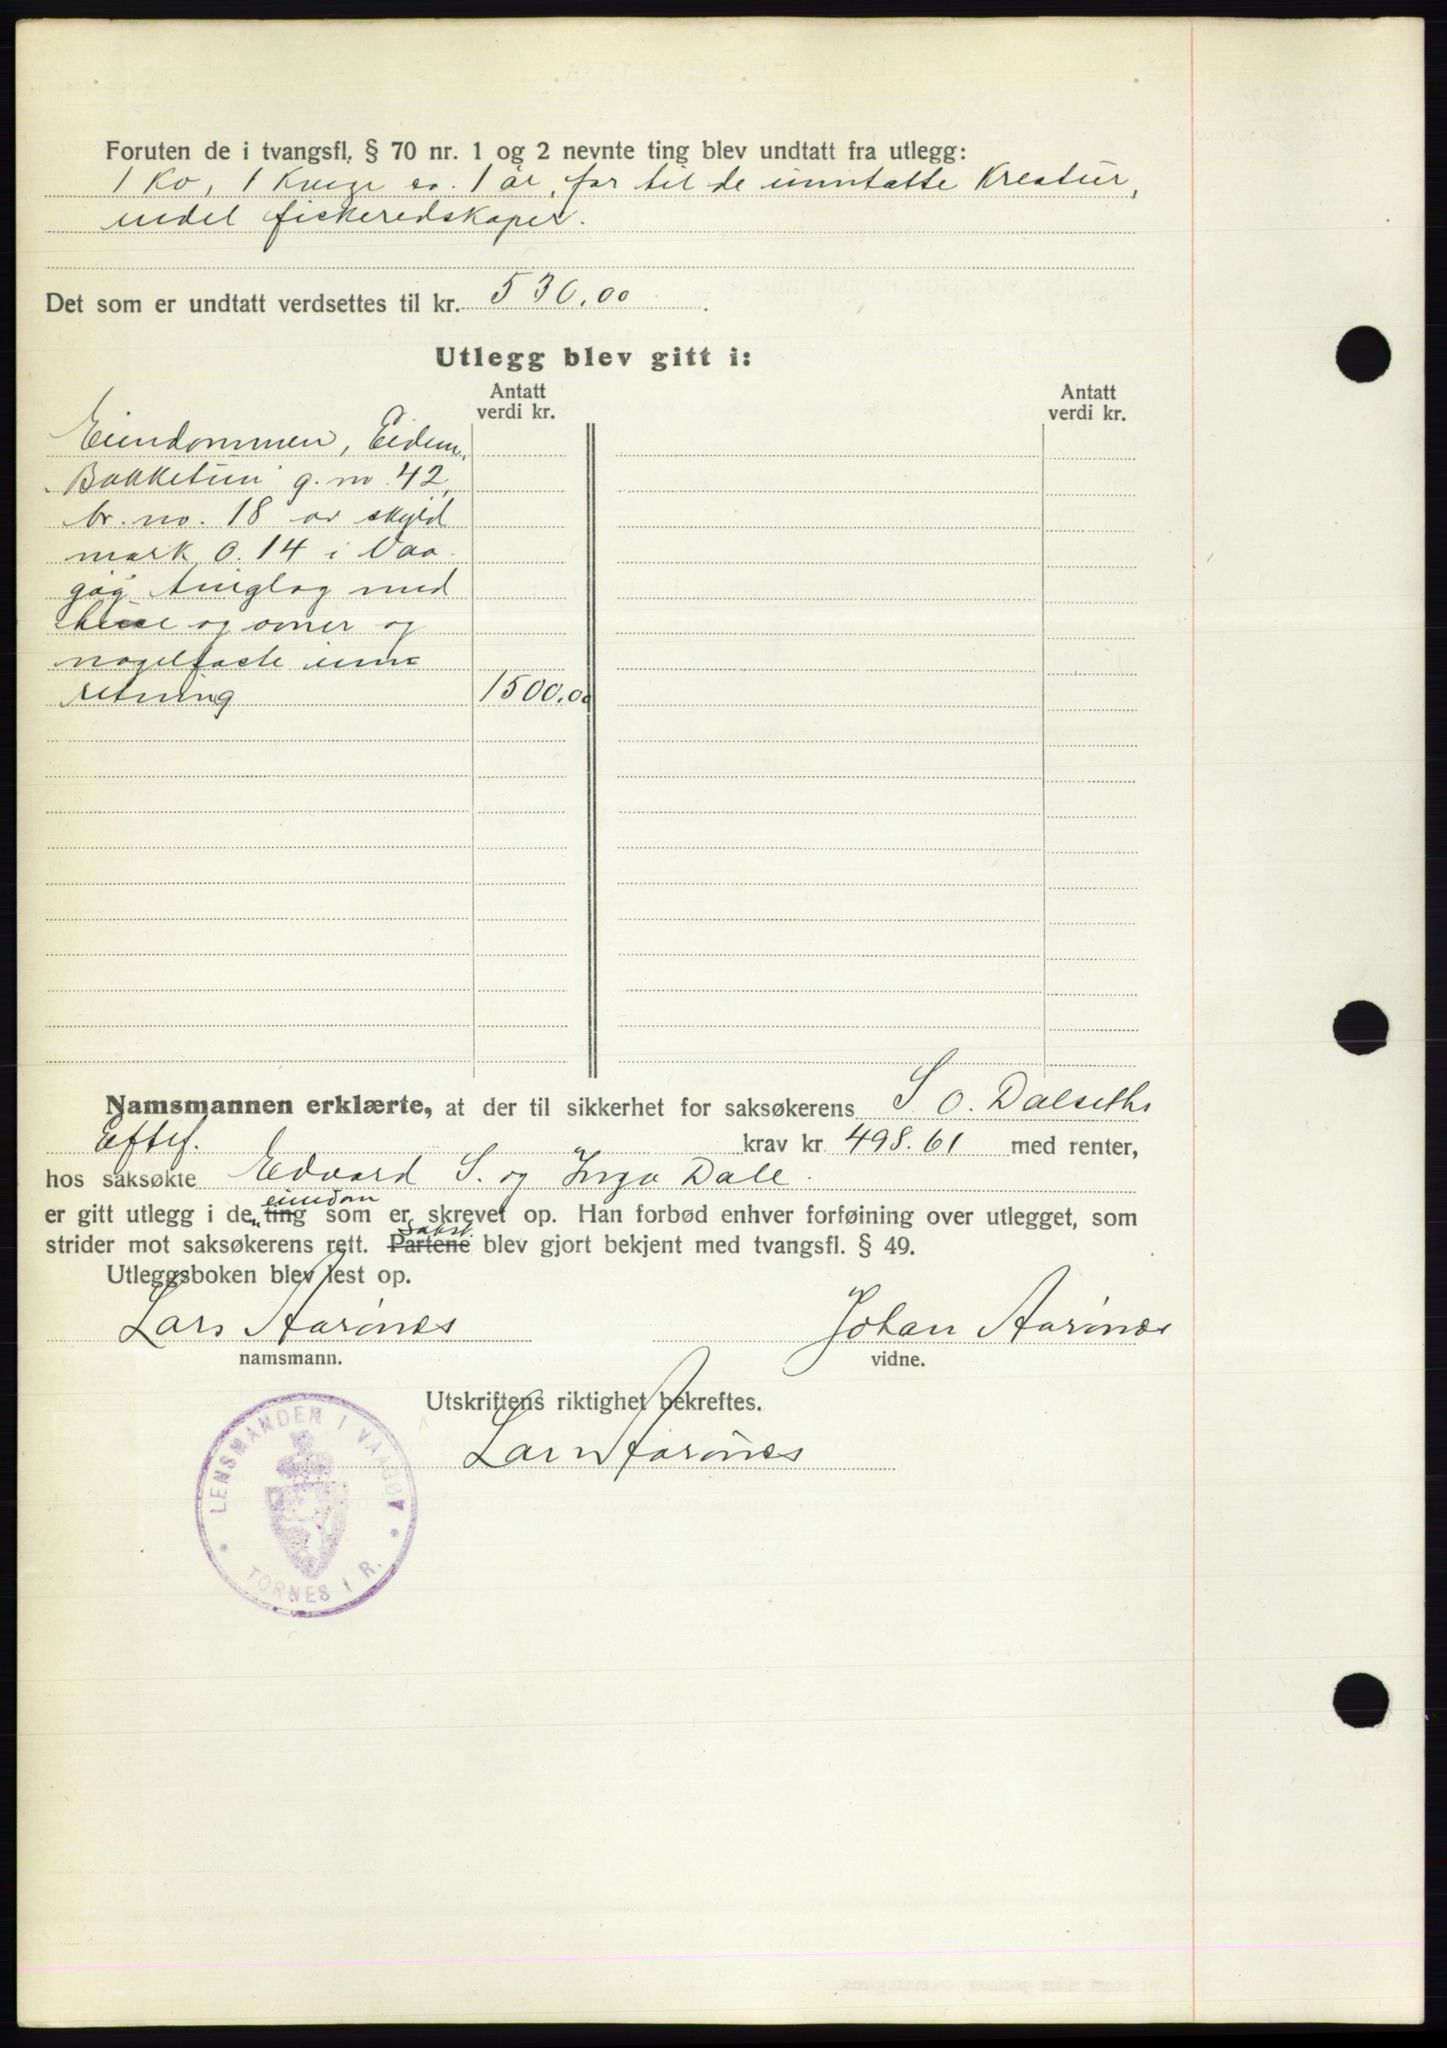 Foruten de i tvangsfl. § 70 nr. 1 og 2 nevnte ting blev undtatt fra utlegg:
1 Ko, 1 Kvige ca. 1 år, for til de unntatte Kreatur,
endel fiskeredskaper.
Det som er undtatt verdsettes til kr. 530.00.
Utlegg blev gitt i:
Antatt verdi kr.
Antatt verdi kr.
Eiendommen, Eidem
Bakketun g. no. 42,
br. no. 18 av skyld
mark 0.14 i Vaa-
gøy tinglag med
huse og onner og
nagelfaste inn-
retning 1500.00
Namsmannen erklærte, at der til sikkerhet for saksøkerens S O. Dalseths
Eftf. krav kr 498.61 med renter,
hos saksøkte Edvard S. og Inga Dale.
eiendom
er gitt utlegg i de ting som er skrevet op. Han forbød enhver forføining over utlegget, som
Sakst.
strider mot saksøkerens rett. Partene blev gjort bekjent med tvangsfl. § 49.
Utleggsboken blev lest op.
Lars Aarönes Johan Aarönes
namsmann. vidne.
Utskriftens riktighet bekreftes.
Lars Aarönes
LENSMANDEN I VAAGØY
* TORNES I R. *